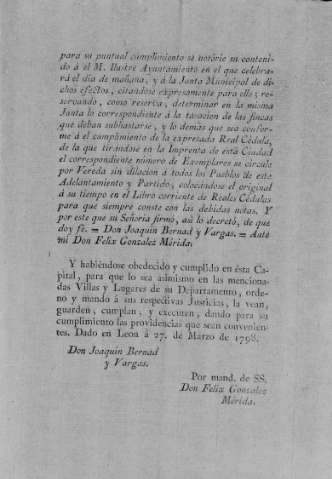 para su puntual cumplimiento se notorie su conteni-
do á el M. Ilustre Ayuntamiento en el que celebra-
rá el dia de mañana, y á la Junta Municipal de di-
chos efectos, citandose expresamente para ello; re-
servando, como reserva, determinar en la misma
Junta lo correspondiente á la tasacion de las fincas
que deban subhastarse, y lo demás que sea confor-
me á el cumplimiento de la expresada Real Cédula,
de la que tirandose en la Imprenta de esta Ciudad
el correspondiente número de Exemplares se circule
por Vereda sin dilacion á todos los Pueblos de este
Adelantamiento y Partido, colocandose el original
á su tiempo en el Libro corriente de Reales Cédulas
para que siempre conste con las debidas notas. Y
por este que su Señoria firmó, asi lo decretó, de que
doy fé. = Don Joaquin Bernad y Vargas. = Ante
mi Don Felix Gonzalez Mérida.
Y habiéndose obedecido y cumplido en ésta Ca-
pital, para que lo sea asimismo en las menciona-
das Villas y Lugares de su Departamento, orde-
no y mando á sus respectivas Justicias, la vean,
guarden, cumplan, y executen, dando para su
cumplimiento las providencias que sean convenien-
tes. Dado en Leon á 27. de Marzo de 1798.
Don Joaquin Bernad
y Vargas.
Por mand. de SS.
Don Felix Gonzalez
Mérida.